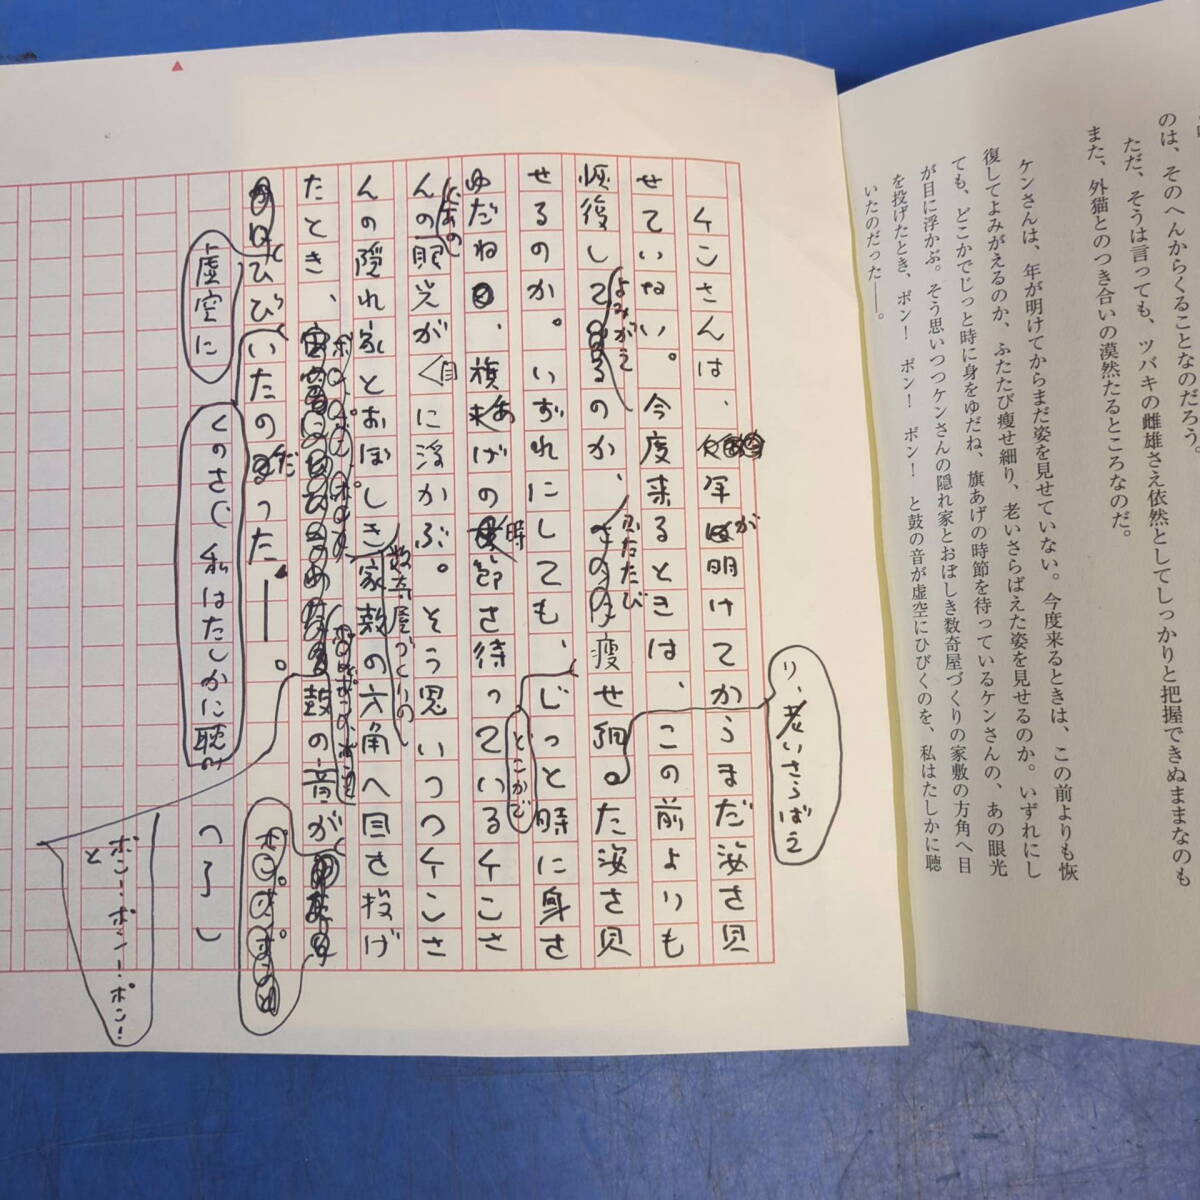 のは、そのへんからくることなのだろう。
ただ、そうは言っても、ツバキの雌雄さえ依然としてしっかりと把握できぬままなのも
また、外猫とのつき合いの漠然たるところなのだ。
ケンさんは、年が明けてからまだ姿を見せていない。今度来るときは、この前よりも恢
復してよみがえるのか、ふたたび痩せ細り、老いさらばえた姿を見せるのか。いずれにし
ても、どこかでじっと時に身をゆだね、旗あげの時節を待っているケンさんの、あの眼光
が目に浮かぶ。そう思いつつケンさんの隠れ家とおぼしき数奇屋づくりの家敷の方角へ目
を投げたとき、ポン！　ポン！　ポン！　と鼓の音が虚空にひびくのを、私はたしかに聴
いたのだった――。
り、老いさらばえ
ケンさんは、年が明けてからまだ姿を見
せていない。今度来るときは、この前よりも
恢復してよみがえるのか、ふたたび痩せ細った姿を見
せるのか。いずれにしても、どこかでじっと時に身を
ゆだね、旗あげの時節を待っているケンさ
んの、あの眼光が目に浮かぶ。そう思いつつケンさ
んの隠れ家とおぼしき数奇屋づくりの家敷の方角へ目を投げ
たとき、鼓の音が
ひびいたのだった――。
虚空に
くのを、私はたしかに聴
（了）
ポン！ポン！ポン！
と